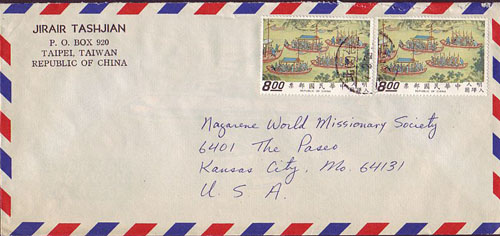 JIRAIR TASHJIAN
P. O. BOX 920
TAIPEI, TAIWAN
REPUBLIC OF CHINA
8.00
票郵國民華中
REPUBLIC OF CHINA
8.00
票郵國民華中
REPUBLIC OF CHINA
Nazarene World Missionary Society
6401 The Paseo
Kansas City, Mo. 64131
U. S. A.